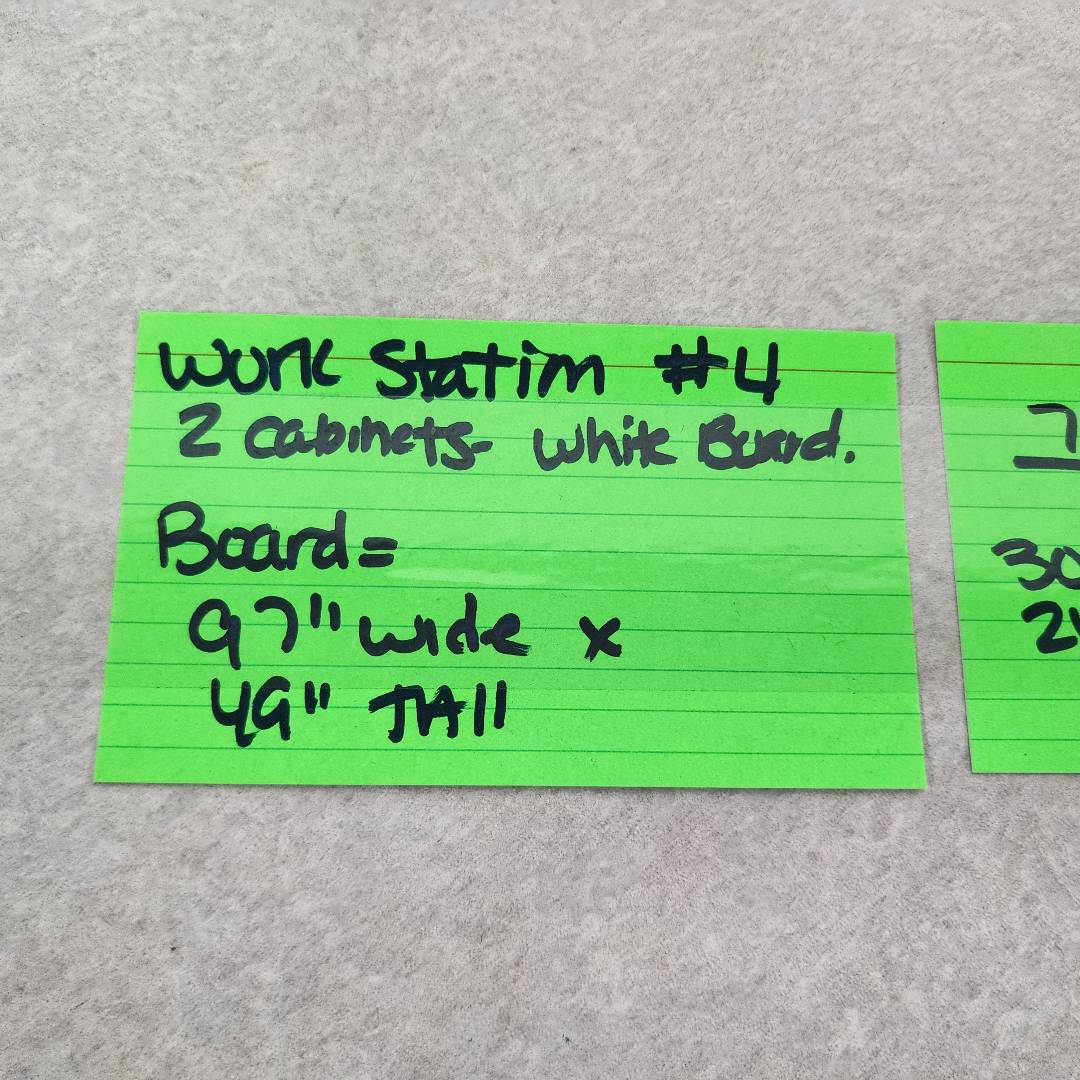 Work Station #4
2 cabinets- White Board.
Board=
97" wide x
49" TAll
7
30